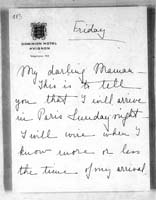 113
Friday
DOMINION HOTEL
AVIGNON
My darling Maman -
This is to tell
you that I will arrive
in Paris Sunday night
I will wire when I
know more or less
the time of my arrival.